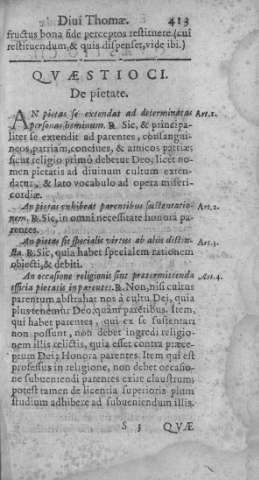 Diui Thomæ. 413
fructus bona fide perceptos restituere. (cui
restituendum, & quis dispenset, vide ibi.)
QVÆSTIO CI.
De pietate.
AN pietas se extendat ad determinatas Art.1.
personas hominum. ℟. Sic, & principa-
liter se extendit ad parentes, consangui-
neos, patriam, conciues, & amicos patriæ;
sicut religio primò debetur Deo, licet no-
men pietatis ad diuinum cultum exten-
datur, & lato vocabulo ad opera miseri-
cordiæ.
An pietas exhibeat parentibus sustentatio- Art.2.
nem. ℟. Sic, in omni necessitate honora pa-
rentes.
An pietas sit specialis virtus ab aliis distin- Art.3.
cta. ℟. Sic, quia habet specialem rationem
obiecti, & debiti.
An occasione religionis sint prætermittenda Art.4.
officia pietatis in parentes. ℟. Non, nisi cultus
parentum abstrahat nos à cultu Dei, quia
plus tenemur Deo quàm parentibus. Item,
qui habet parentes, qui ex se sustentari
non possunt, non debet ingredi religio-
nem illis relictis, quia esset contra præce-
ptum Dei; Honora parentes. Item qui est
professus in religione, non debet occasio-
ne subueniendi parentes exire claustrum;
potest tamen de licentia superioris pium
studium adhibere ad subueniendum illis.
S 3 QVÆ